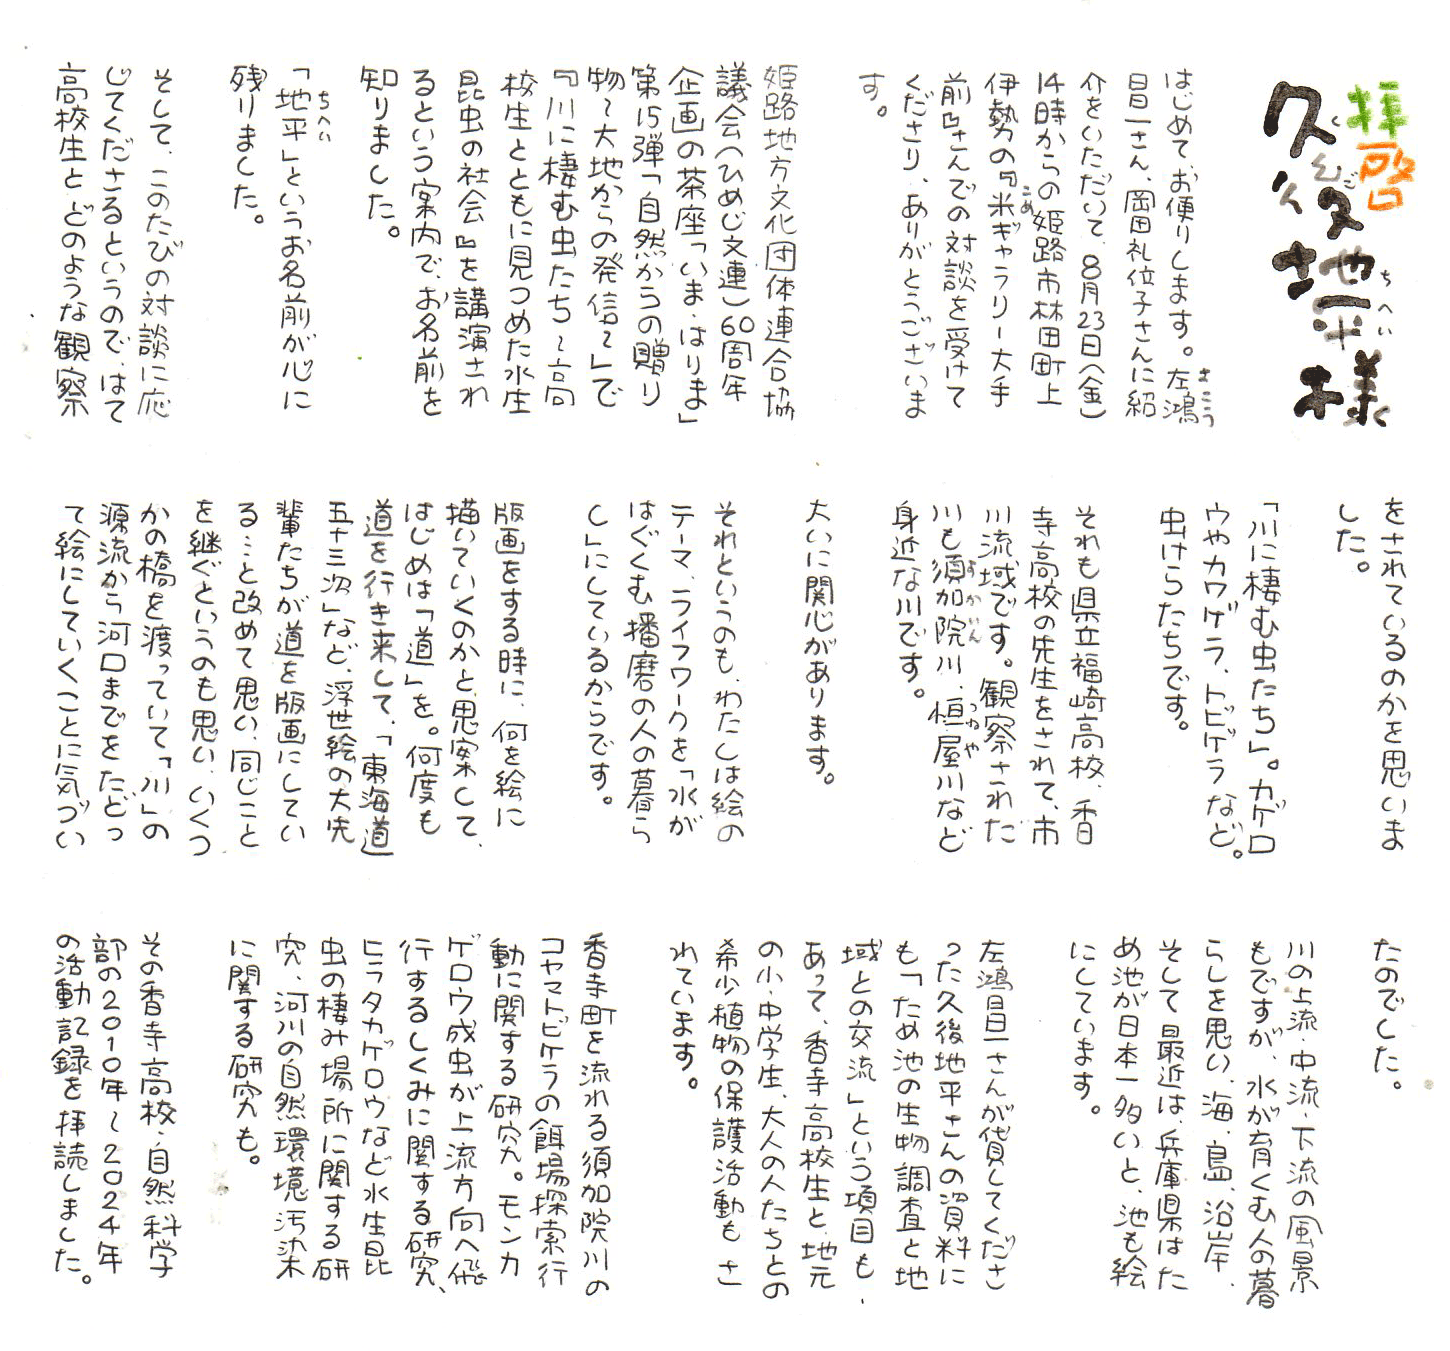 拝啓
久後地平様
くご ちへい
はじめて、お便りします。左鴻
さこう
昌一さん、岡田礼位子さんに紹
介をいただいて、8月23日(金)
14時からの姫路市林田町上
伊勢の『米ギャラリー大手
こめ
前』さんでの対談を受けて
くださり、ありがとうございま
す。
姫路地方文化団体連合協
議会(ひめじ文連)60周年
企画の茶座「いま・はりま」
第15弾「自然からの贈り
物～大地からの発信～」で
『川に棲む虫たち～高
校生とともに見つめた水生
昆虫の社会』を講演され
るという案内で、お名前を
知りました。
「地平」というお名前が心に
ちへい
残りました。
そして、このたびの対談に応
じてくださるというので、はて
高校生と、どのような観察
をされているのかを思いま
した。
「川に棲む虫たち」。カゲロ
ウやカワゲラ、トビゲラなど。
虫けらたちです。
それも県立福崎高校、香
寺高校の先生をされて、市
川流域です。観察された
川も須加院川、恒屋川など
すかいん つねや
身近な川です。
大いに関心があります。
それというのも、わたしは絵の
テーマ、ライフワークを「水が
はぐくむ播磨の人の暮ら
し」にしているからです。
版画をする時に、何を絵に
描いていくのかと思案して、
はじめは「道」を。何度も
道を行き来して、「東海道
五十三次」など、浮世絵の大先
輩たちが道を版画にしてい
る…と改めて思い、同じこと
を継ぐというのも思い、いくつ
かの橋を渡っていて「川」の
源流から河口までをたどっ
て絵にしていくことに気づい
たのでした。
川の上流・中流・下流の風景
もですが、水が育くむ人の暮
らしを思い、海、島、沿岸、
そして最近は、兵庫県はた
め池が日本一多いと、池も絵
にしています。
左鴻昌一さんが貸してくださ
った久後地平さんの資料に
も「ため池の生物調査と地
域との交流」という項目も、
あって、香寺高校生と、地元
の小、中学生、大人の人たちとの
希少植物の保護活動もさ
れています。
香寺町を流れる須加院川の
コヤマトビケラの餌場探索行
動に関する研究。モンカ
ゲロウ成虫が上流方向へ飛
行するしくみに関する研究、
ヒラタカゲロウなど水生昆
虫の棲み場所に関する研
究、河川の自然環境汚染
に関する研究も。
その香寺高校・自然科学
部の2010年～2024年
の活動記録を拝読しました。